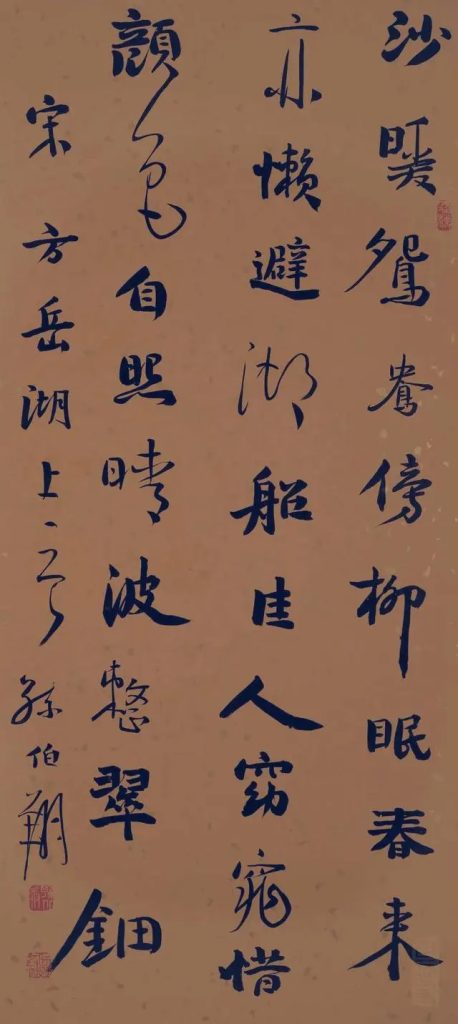 沙暖鴛鴦傍柳眠春来
亦懶避湖船佳人窈窕惜
顔色自照晴波整翠鈿
宋方岳湖上一首孫伯翔